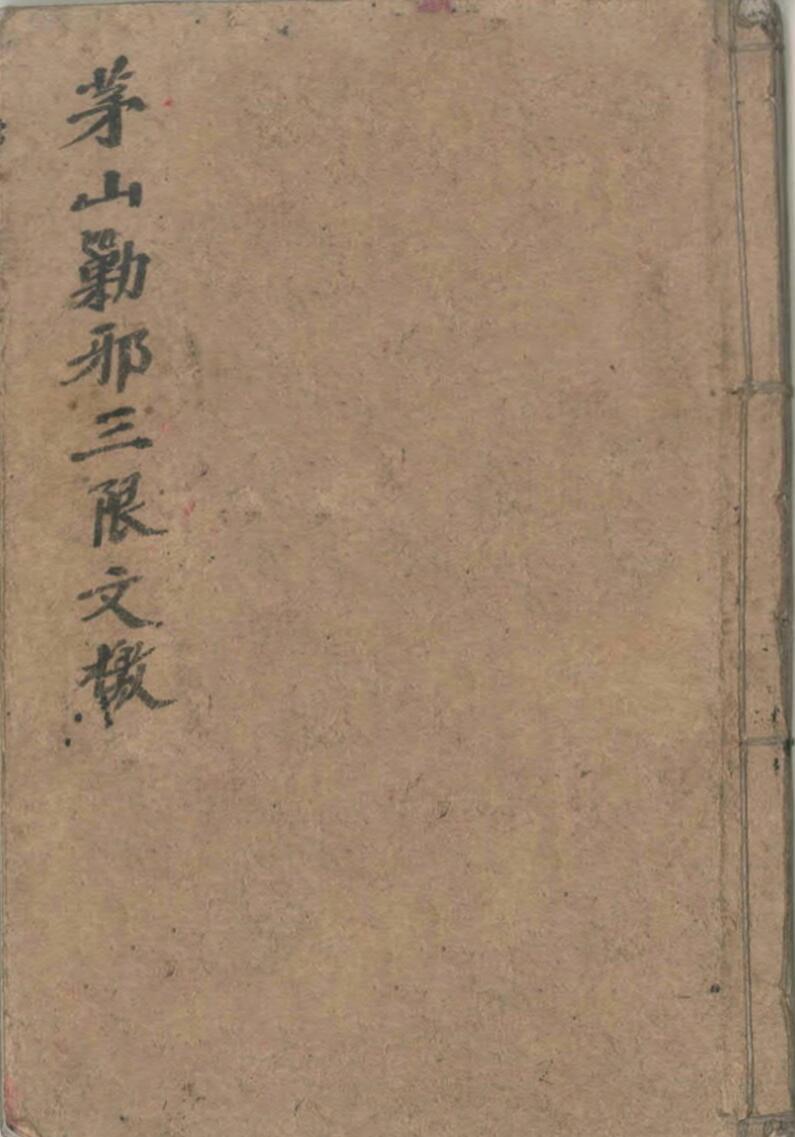 茅山勦邪三限文檄